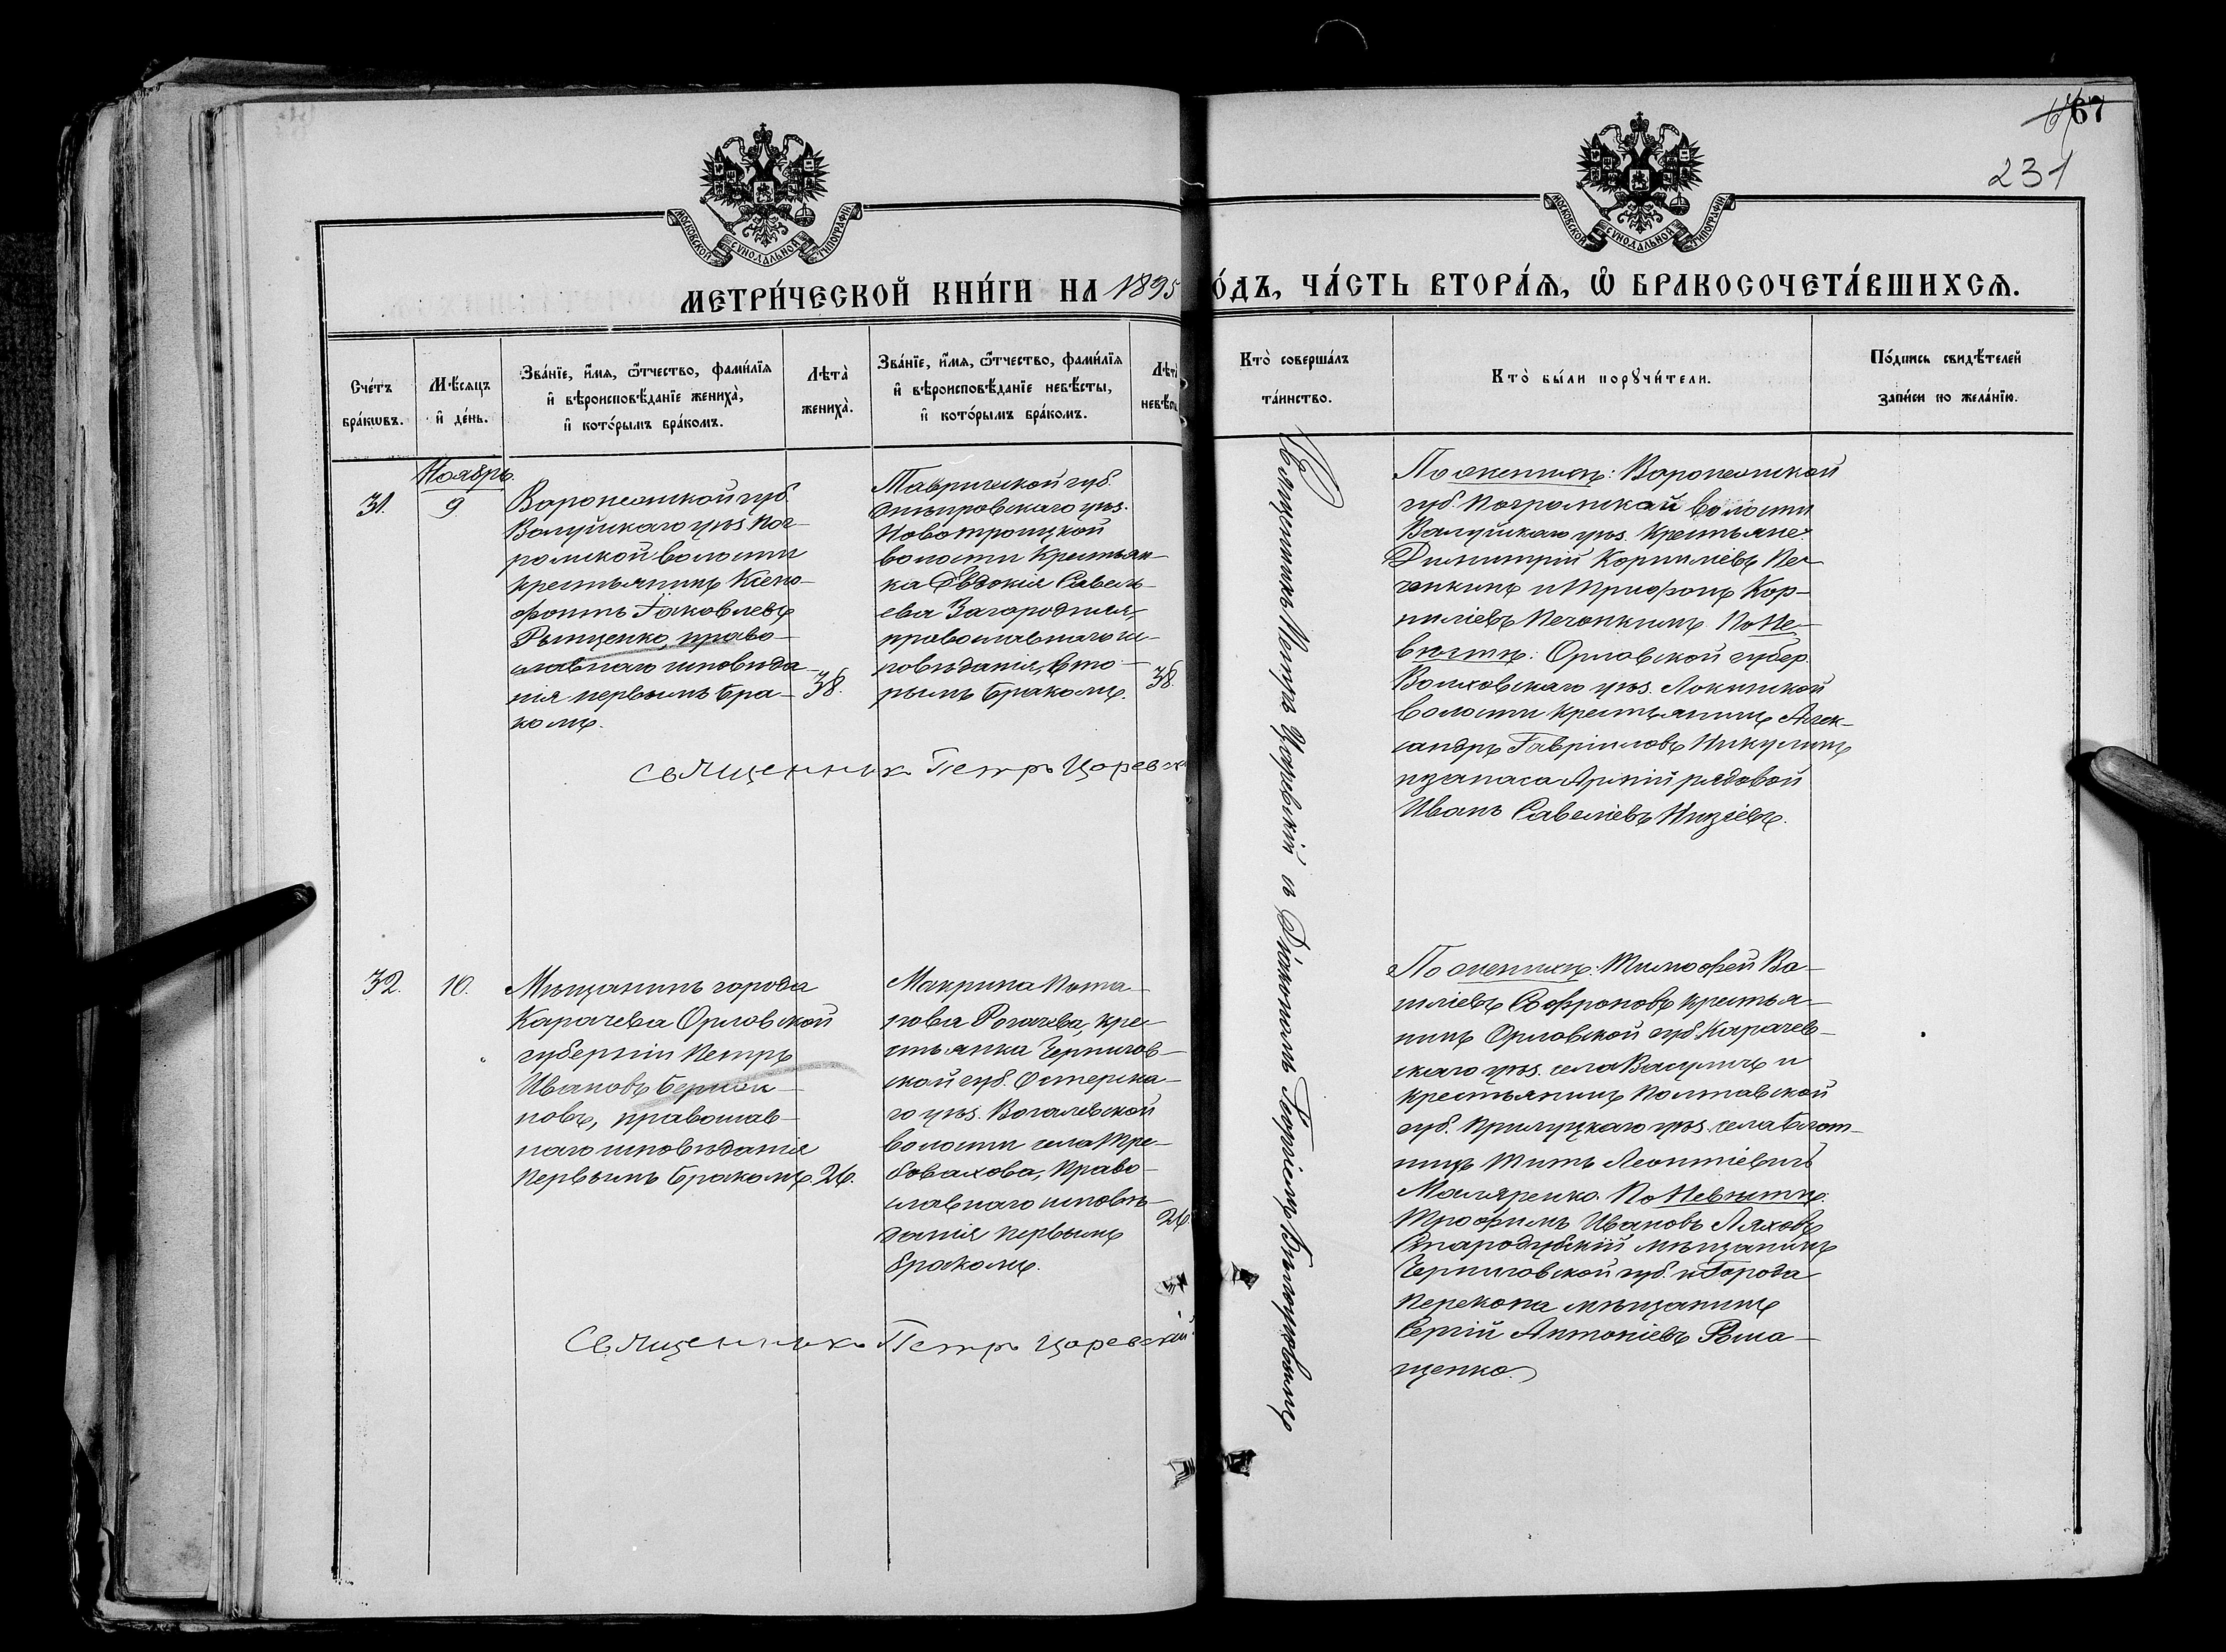 67
231
МОСКОВСКОЙ СѴНОДАЛЬНОЙ ТИПОГРАФІИ
МОСКОВСКОЙ СѴНОДАЛЬНОЙ ТИПОГРАФІИ
МЕТРИ́ЧЕСКОЙ КНИ́ГИ НА 1895 О́ДЪ, ЧА́СТЬ ВТОРА́Ѧ, Ѡ БРАКОСОЧЕТА́ВШИХСѦ.
Сче́тъ
бра́кѡвъ.
Мѣ́сяцъ
и де́нь.
Зва́нїе, и́мѧ, ѻ҆́тчество, фами́лїѧ
и вѣроисповѣ́данїе жениха̀,
и кото́рымъ бра́комъ.
Лѣта̀
жениха̀.
Зва́нїе, и́мѧ, ѻ҆́тчество, фами́лїѧ
и вѣроисповѣ́данїе невѣ́сты,
и кото́рымъ бра́комъ.
Лѣта
невѣ́сты
Кто̀ соверша́лъ
та́инство.
Кто̀ бы́ли порꙋчи́тели.
По́дпись свидѣ́телей
за́писи по жела́нїю.
Ноябрь
31.
9
Воронежской губ.
Валуйскаго уѣз. Пог-
ромской волости
крестьянинъ Ксено-
фонтъ Іаковлевъ
Рыщенко, право-
славнаго исповѣда-
нія первымъ бра-
комъ.
38.
Таврической губ.
Днѣпровскаго уѣз.
Новотроицкой
волости крестьян-
ка Евдокія Савель-
ева Загородняя,
православнаго ис-
повѣданія, вто-
рымъ бракомъ.
38.
Священникъ Петръ Царевск
Священникъ Петръ Царевскій съ Діакономъ Георгіемъ Бѣлоусовымъ
По женихѣ: Воронежской
губ. Погромской волости
Валуйскаго уѣз. крестьяне
Димитрій Корниліевъ Пе-
чонкинъ и Трифонъ Кор-
ниліевъ Печонкинъ. По Не-
вѣстѣ: Орловской губер.
Волховскаго уѣз. Локинской
волости крестьянинъ Алек-
сандръ Гавріиловъ Никулинъ
и запаса Арміи рядовой
Иванъ Савеліевъ
32.
10.
Мѣщанинъ города
Карачева Орловской
губерніи Петръ
Ивановъ
новъ, православ-
наго исповѣданія
первымъ бракомъ.
26.
Макрина Пота-
пова Рогачева, кре-
стьянка Чернигов-
ской губ. Остерска-
го уѣз. Воталевской
волости села Тре-
бовахова, Право-
славнаго исповѣ-
данія первымъ
бракомъ.
26.
Священникъ Петръ Царевскій
По женихѣ: Тимофей Ва-
силіевъ Софроновъ крестья-
нинъ Орловской губ. Карачев-
скаго уѣз. села и
крестьянинъ Полтавской
губ. Прилуцкаго уѣз. села Блот-
ницъ Титъ Леонтіевичъ
Маляренко. По Невѣстѣ:
Трофимъ Ивановъ Ляховъ
Стародубскій мѣщанинъ
Черниговской губ. и Города
Перекопа мѣщанинъ
Сергій Антоніевъ
щенко.